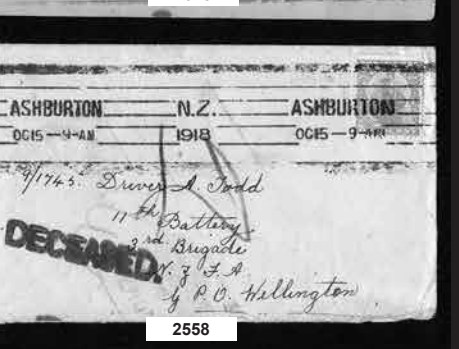 ASHBURTON N.Z. ASHBURTON
OC15—9-AM 1918 OC15—9-AM
9/1745. Driver A. Todd
11th Battery
3rd Brigade
DECEASED.
N. Z. F. A
G. P. O. Wellington
2558